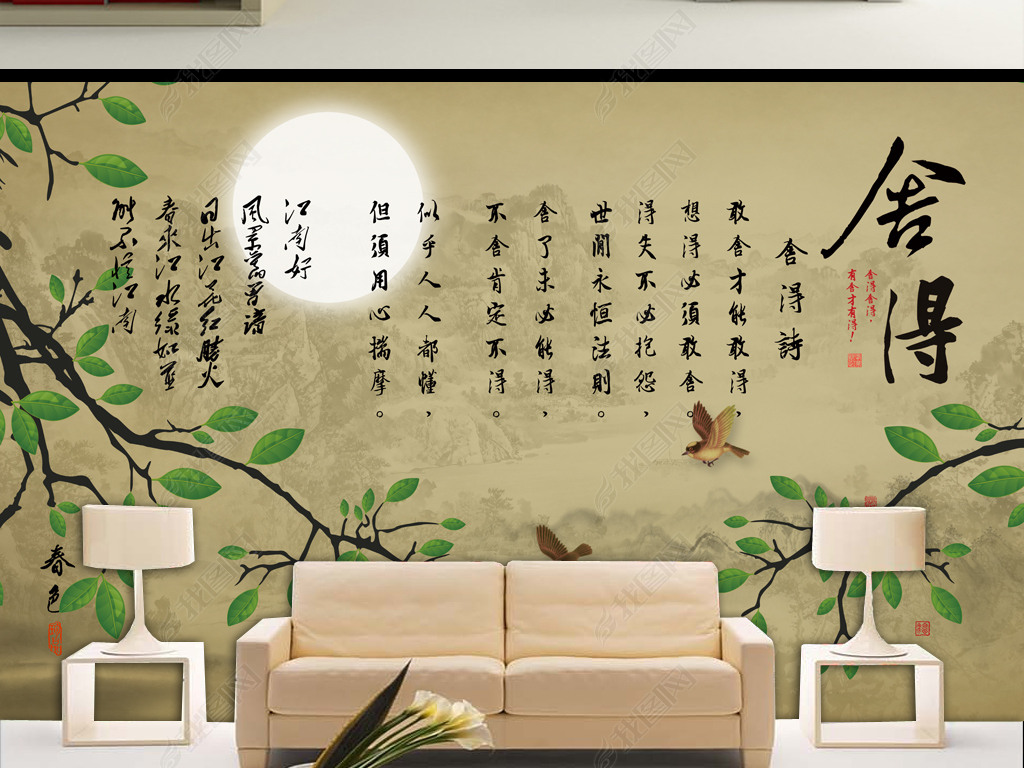 舍得
舍得舍得,
有舍才有得!
舍得詩
敢舍才能敢得,
想得必須敢舍。
得失不必抱怨,
世間永恒法則。
舍了未必能得,
不舍肯定不得。
似乎人人都懂,
但須用心揣摩。
江南好
風景舊曾諳
日出江花紅勝火
春來江水綠如藍
能不憶江南
春色